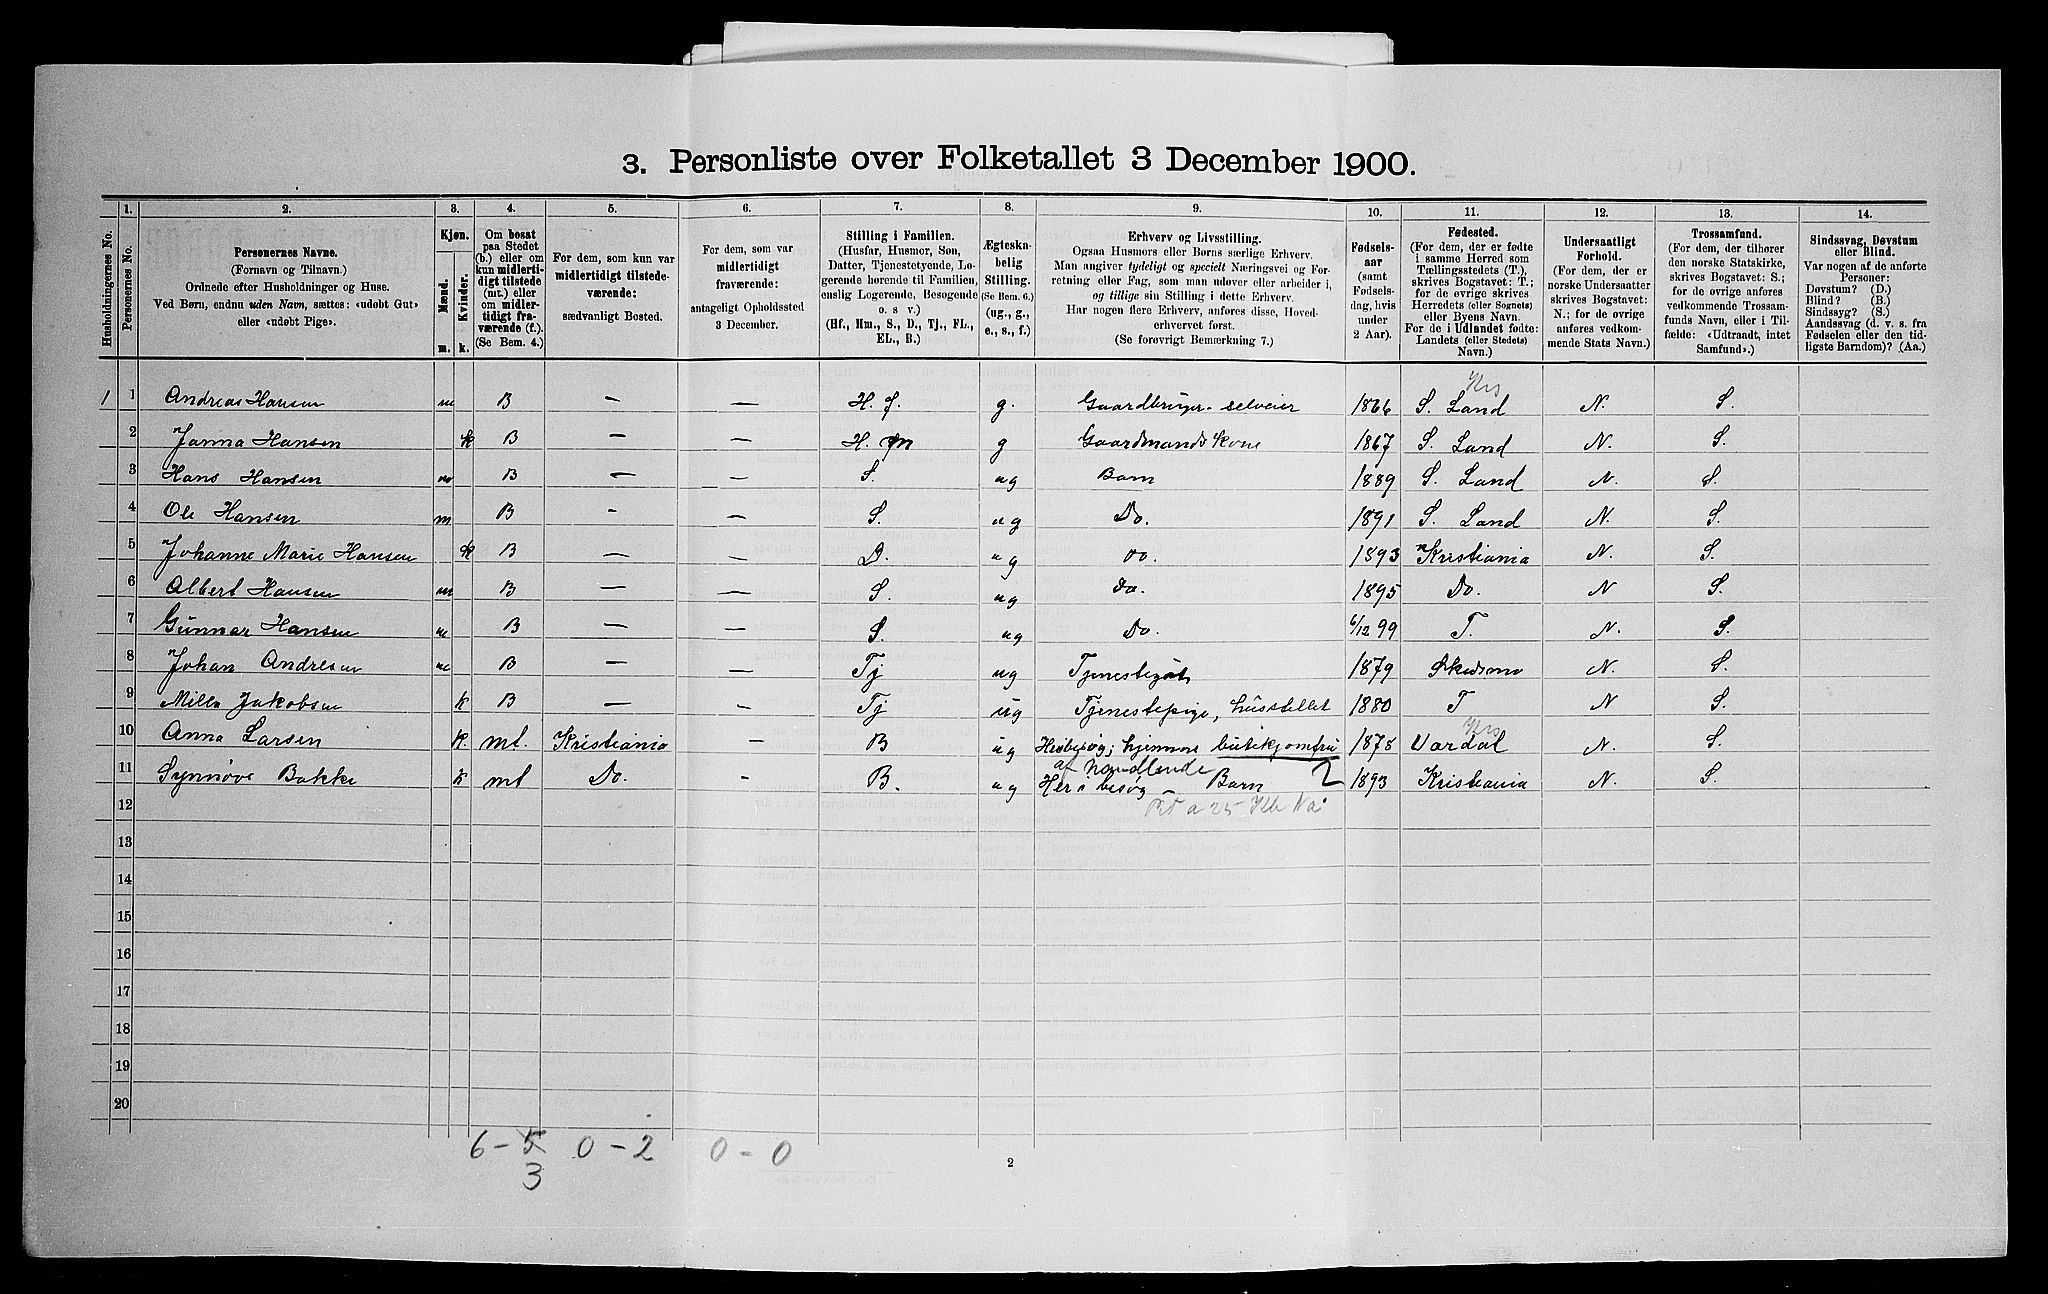 3. Personliste over Folketallet 3 December 1900.
1. 2. 3. 4. 5. 6. 7. 8. 9. 10. 11. 12. 13. 14.
Husholdningernes No.
Personernes No.
Personernes Navne.
(Fornavn og Tilnavn.)
Ordnede efter Husholdninger og Huse.
Ved Børn, endnu uden Navn, sættes: «udøbt Gut»
eller «udøbt Pige».
Kjøn.
Mænd.
Kvinder.
m. k.
Om bosat
paa Stedet
(b.) eller om
kun midlerti-
digt tilstede
(mt.) eller
om midler-
tidigt fra-
værende (f.).
(Se Bem. 4.)
For dem, som kun var
midlertidigt tilstede-
værende:
sædvanligt Bosted.
For dem, som var
midlertidigt
fraværende:
antageligt Opholdssted
3 December.
Stilling i Familien.
(Husfar, Husmor, Søn,
Datter, Tjenestetyende, Lo-
gerende hørende til Familien,
enslig Logerende, Besøgende
o. s v.)
(Hf., Hm., S., D., Tj., FL.,
EL., B.)
Ægteska-
belig
Stilling.
(Se Bem. 6.)
(ug., g.,
e., s., f.)
Erhverv og Livsstilling.
Ogsaa Husmors eller Børns særlige Erhverv.
Man angiver tydeligt og specielt Næringsvei og For-
retning eller Fag, som man udøver eller arbeider i,
og tillige sin Stilling i dette Erhverv.
Har nogen flere Erhverv, anføres disse, Hoved-
erhvervet først.
(Se forøvrigt Bemærkning 7.)
Fødsels-
aar
(samt
Fødsels-
dag, hvis
under
2 Aar).
Fødested.
(For dem, der er fødte
i samme Herred som
Tællingsstedets (T.),
skrives Bogstavet: T.;
for de øvrige skrives
Herredets (eller Sognets)
eller Byens Navn.
For de i Udlandet fødte:
Landets (eller Stedets)
Navn.)
Undersaatligt
Forhold.
(For dem, der er
norske Undersaatter
skrives Bogstavet:
N.; for de øvrige
anføres vedkom-
mende Stats Navn.)
Trossamfund.
(For dem, der tilhører
den norske Statskirke,
skrives Bogstavet: S.;
for de øvrige anføres
vedkommende Trossam-
funds Navn, eller i Til-
fælde: «Udtraadt, intet
Samfund».)
Sindssvag, Døvstum
eller Blind.
Var nogen af de anførte
Personer:
Døvstum? (D.)
Blind? (B.)
Sindssyg? (S.)
Aandssvag (d. v. s. fra
Fødselen eller den tid-
ligste Barndom)? (Aa.)
Krs
1 1 Andreas Hansen m B — — H. f. g. Gaardbruger - selveier 1866 S. Land N. S.
2 Janna Hansen k B — — H. m g Gaardmandskone 1867 S. Land N. S.
3 Hans Hansen m B — — S. ug Barn 1889 S. Land N. S.
4 Ole Hansen m B - — S. ug Do. 1891 S. Land N. S.
5 Johanne Marie Hansen k B — — D. ug Do. 1893 Kristiania N. S.
6 Albert Hansen m B — — S. ug Do. 1895 Do. N S.
7 Gunnar Hansen m B — — S. ug Do. 6/12 99 T. N. S.
8 Johan Andresen m B — — Tj ug Tjenestegut 1879 Skedsmo N. S.
9 Milla Jakobsen k B — — Tj ug Tjenestepige, husstellet 1880 T N S.
Krs
10 Anna Larsen k. mt. Kristiania — B ug Her i besøg; hjemme butikjomfru 1875 Vardal N. S.
af Handlende
11 Synnøve Bakke k mt Do. - B. ug Her i besøg Barn 2 1893 Kristiania N. S.
12
13
14
15
16
17
18
19
20
6 - 5 0 - 2 0 - 0
3
2